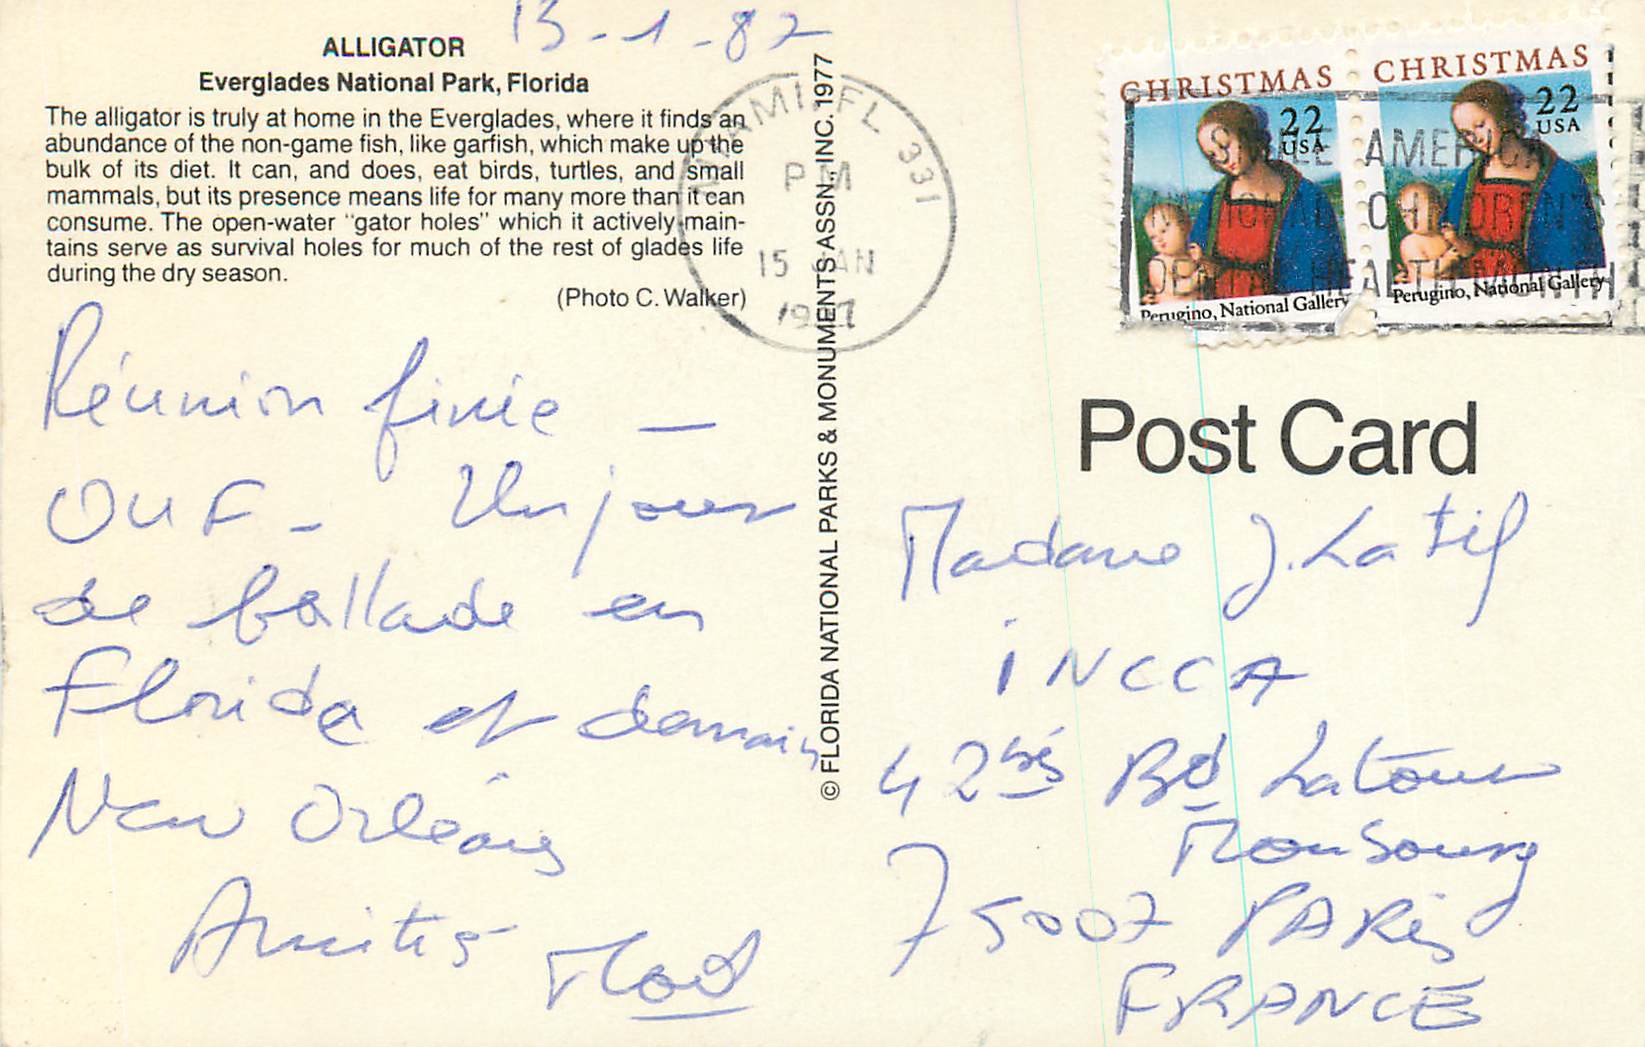 13-1-87
ALLIGATOR
Everglades National Park, Florida
The alligator is truly at home in the Everglades, where it finds an
abundance of the non-game fish, like garfish, which make up the
bulk of its diet. It can, and does, eat birds, turtles, and small
mammals, but its presence means life for many more than it can
consume. The open-water "gator holes" which it actively main-
tains serve as survival holes for much of the rest of glades life
during the dry season.
(Photo C. Walker)
Réunion finie —
OUF - Un jour
de ballade en
Florida et demain
New Orléans
Amitiés
© FLORIDA NATIONAL PARKS & MONUMENTS ASSN., INC. 1977
MIAMI, FL 331
PM
15 JAN
1987
CHRISTMAS
22
USA
Perugino, National Gallery
CHRISTMAS
22
USA
Perugino, National Gallery
AMERICA
NATIONAL CHILDREN'S
DENTAL HEALTH MONTH
Post Card
Madame J. Latif
INCCA
42 bis Bd Latour
Maubourg
75007 PARIS
FRANCE